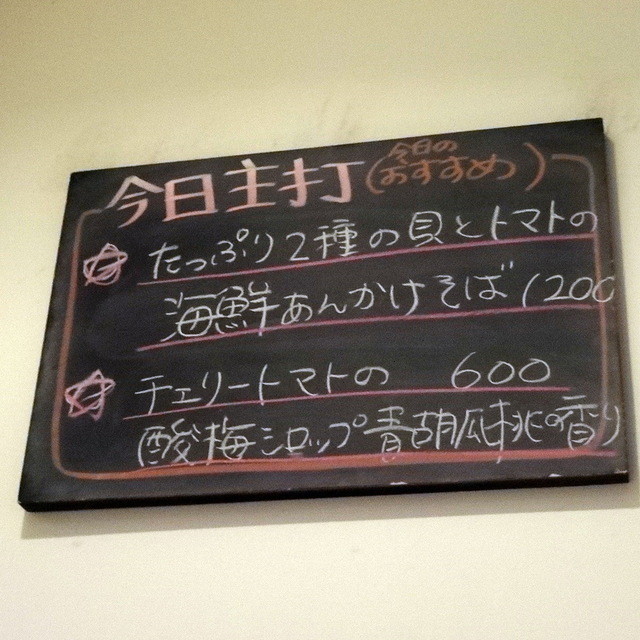 今日主打(今日のおすすめ)
☆ たっぷり2種の貝とトマトの
海鮮あんかけそば 1200
☆ チェリートマトの 600
酸梅シロップ青胡瓜桃の香り